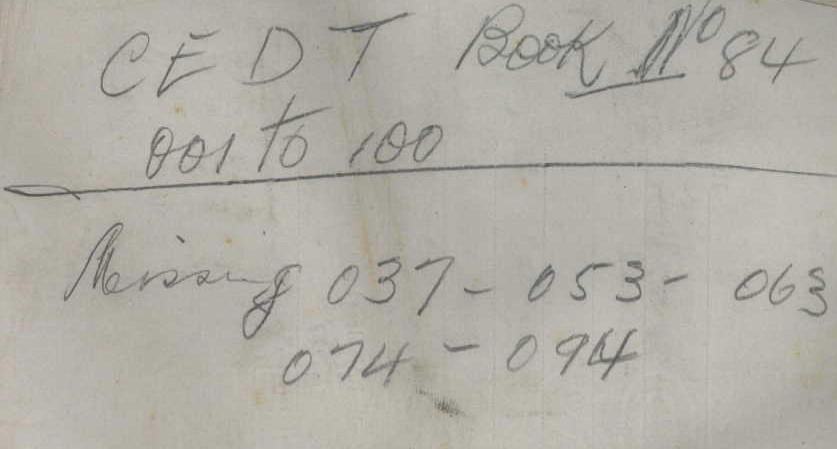 CEDT Book No 84
001 to 100
Missing 037 - 053 - 063
074 - 094